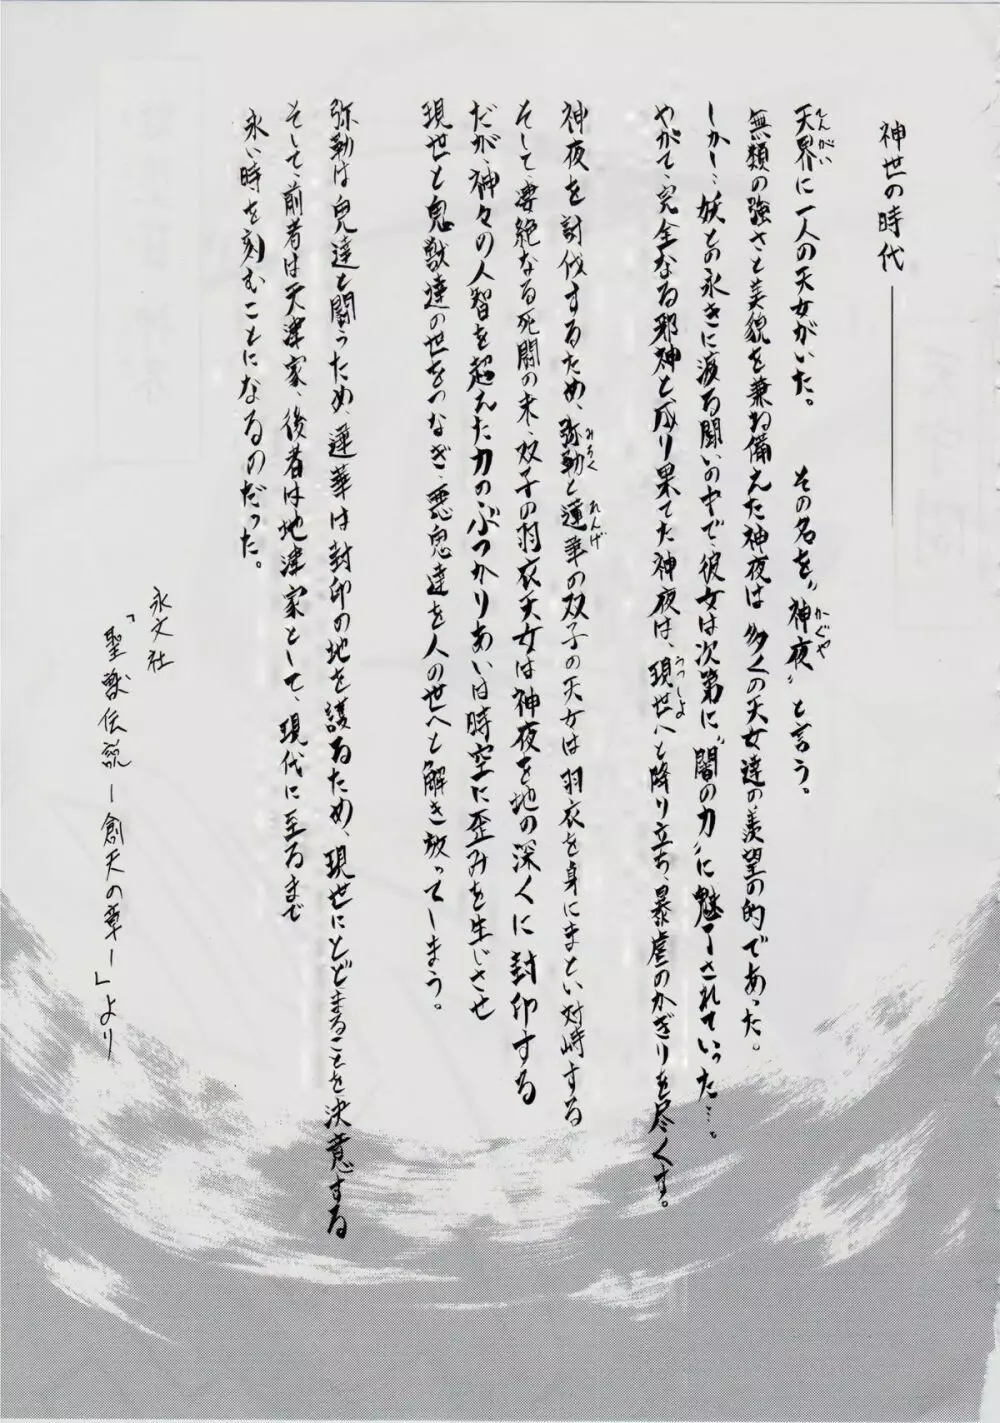 神世の時代――――
天界に一人の天女がいた。 その名を〝神夜〟と言う。
無類の強さと美貌を兼ね備えた神夜は多くの天女達の羨望の的であった。
しかし…妖との永きに渡る闘いの中で、彼女は次第に〝闇の力〟に魅了されていった…。
やがて、完全なる邪神と成り果てた神夜は、現世へと降り立ち、暴虐のかぎりを尽くす。
神夜を討伐するため、弥勒と蓮華の双子の天女は羽衣を身にまとい対峙する
そして、凄絶なる死闘の末、双子の羽衣天女は神夜を地の深くに封印する
だが、神々の人智を超えた力のぶつかりあいは時空に歪みを生じさせ
現世と鬼獣達の世をつなぎ、悪鬼達を人の世へと解き放ってしまう。
弥勒は鬼達と闘うため、蓮華は封印の地を護るため、現世にとどまることを決意する
そして、前者は天津家、後者は地津家として、現代に至るまで
永い時を刻むことになるのだった。
永文社
「聖獣伝説ー創天の章ー」より
てんがい
かぐや
うつしよ
みろく
れんげ